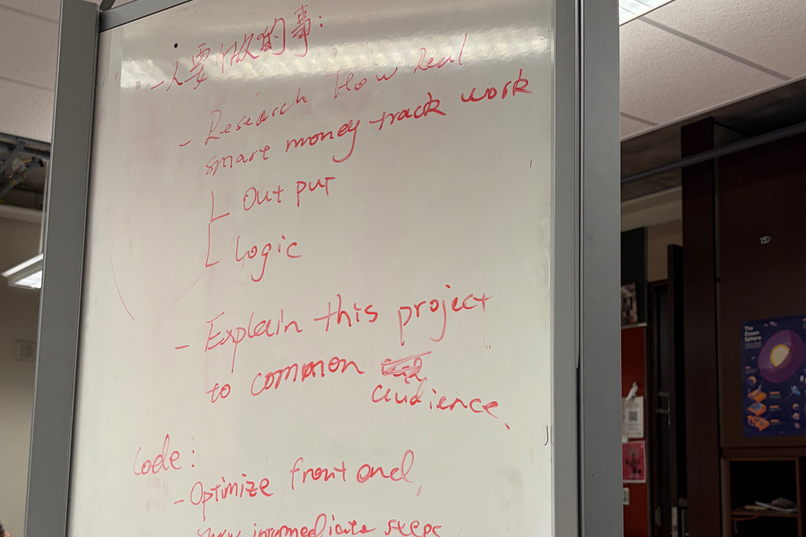 一人要做的事:
- Research How Real
smart money track work
Output
Logic
- Explain this project
to common
audience.
Code:
- Optimize front end,
intermediate steps
The
Dyson
Sphere